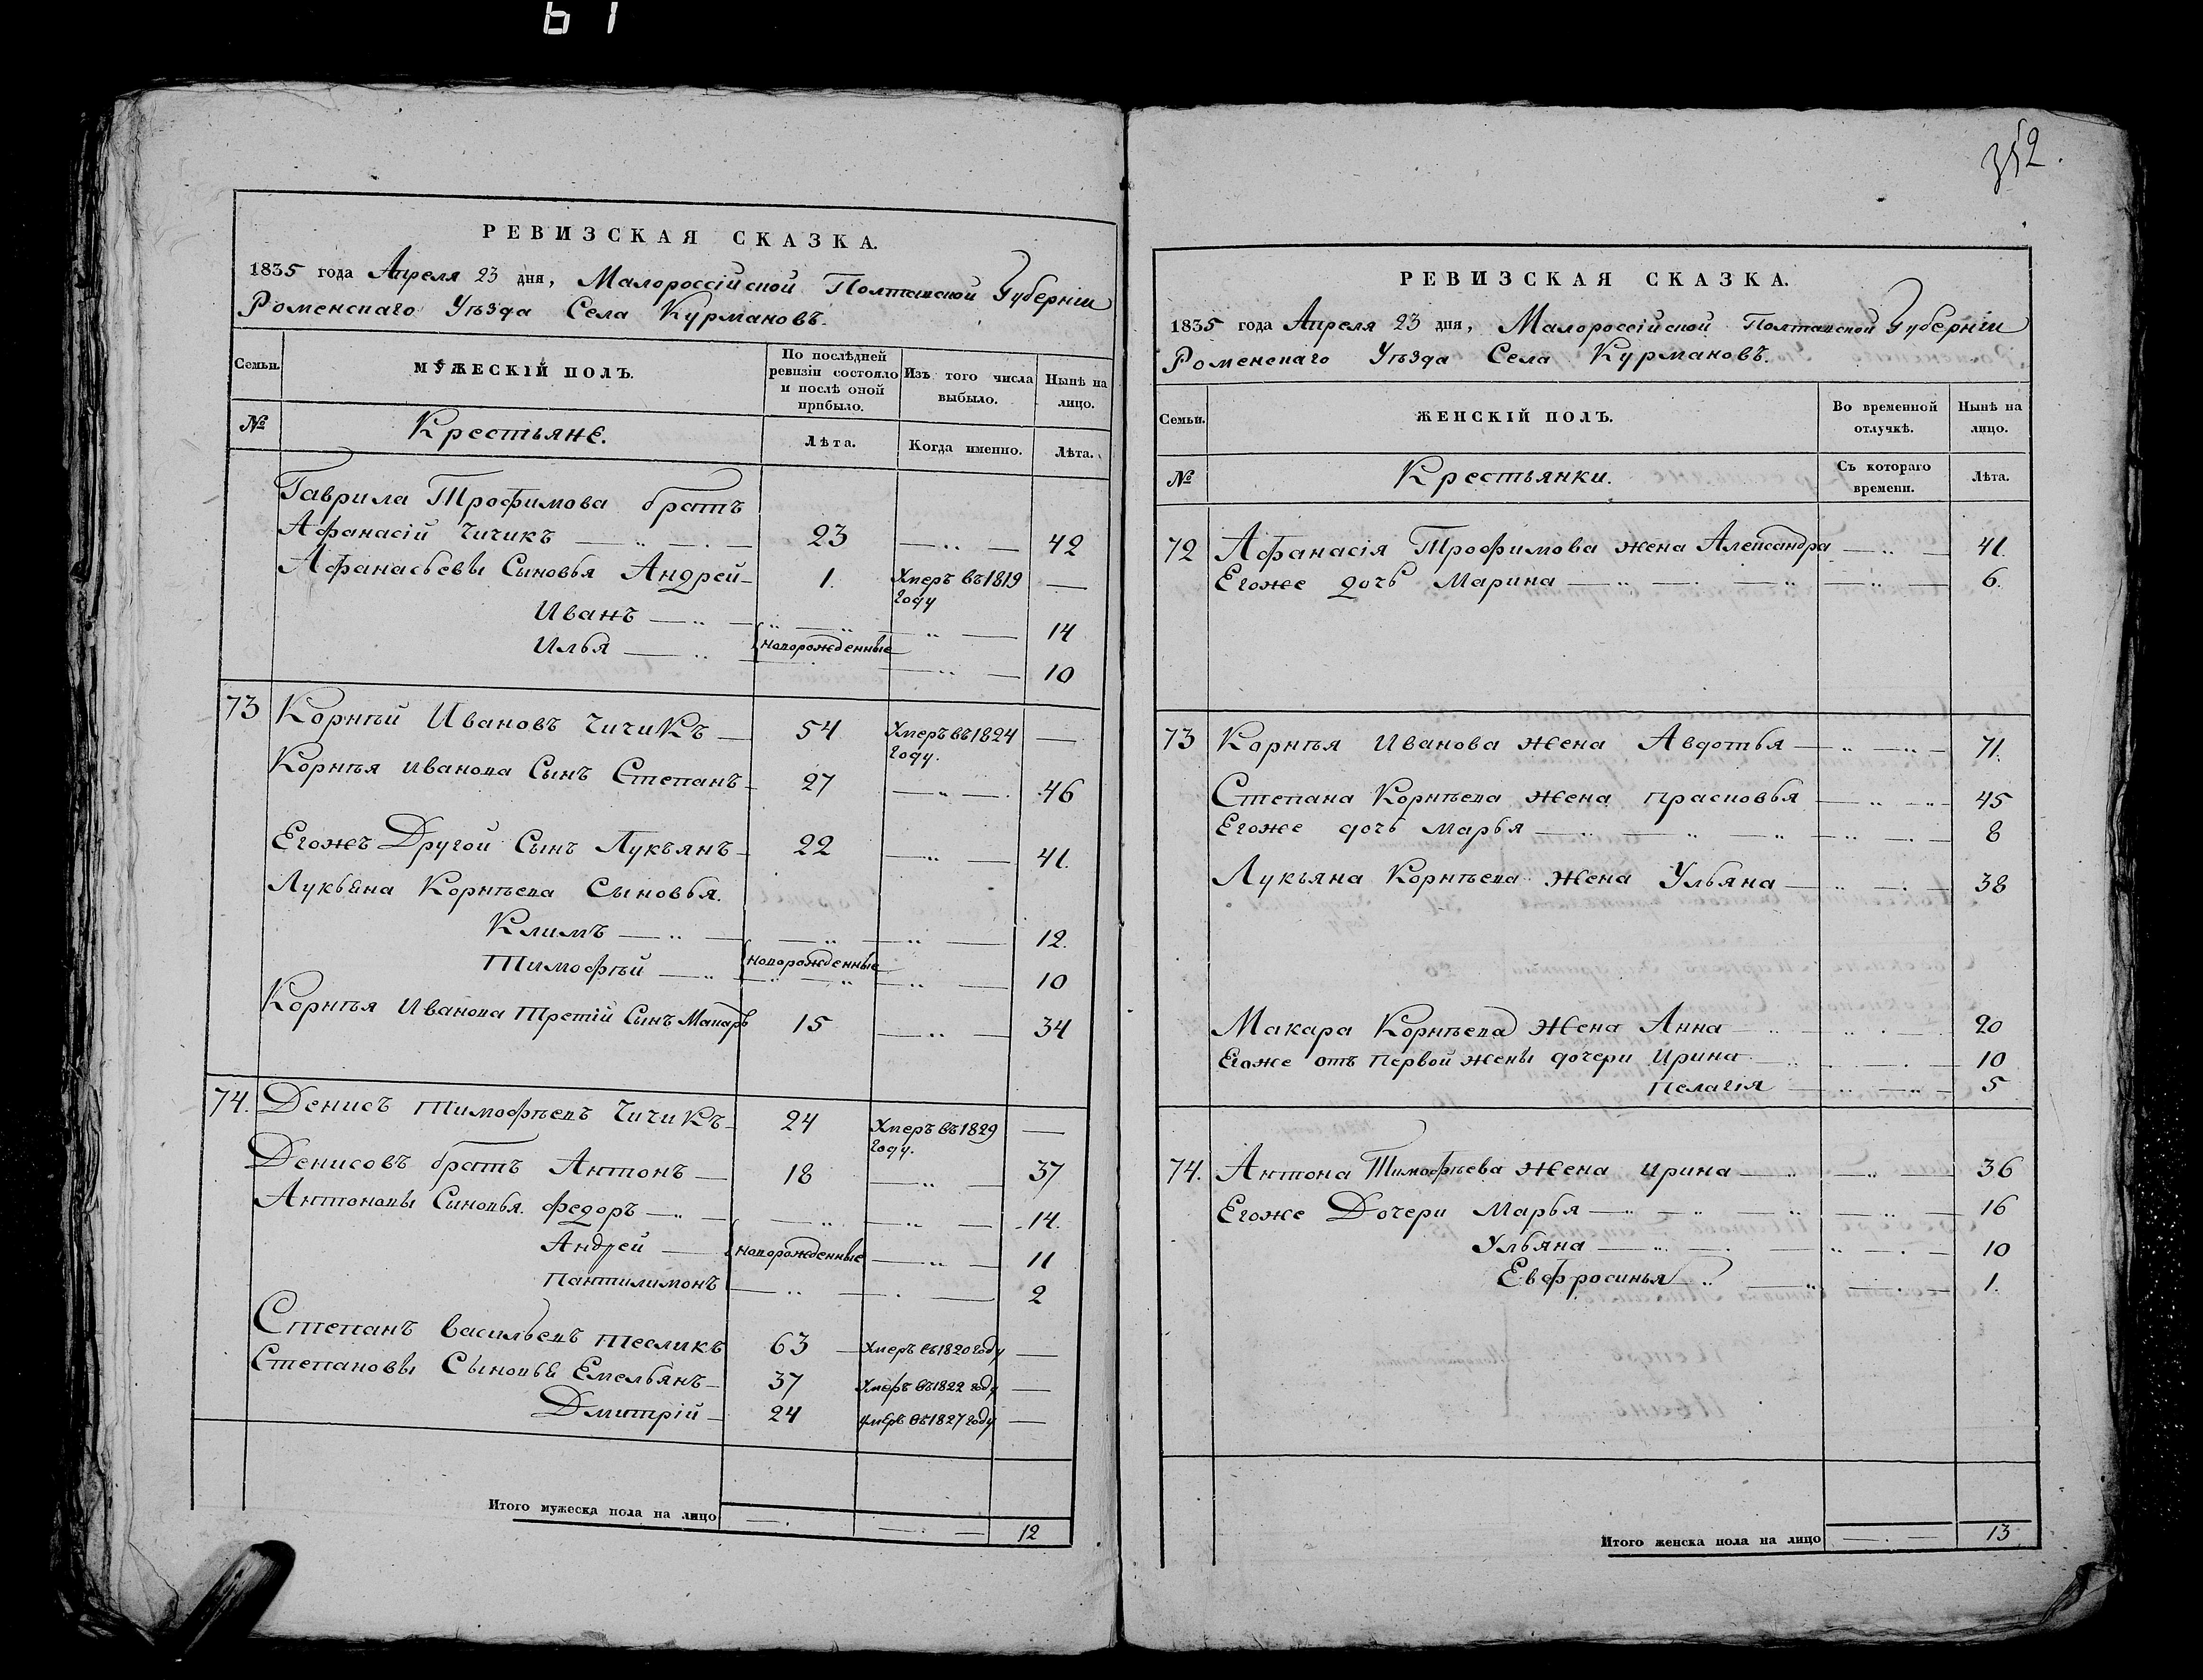 61
352.
РЕВИЗСКАЯ СКАЗКА.
1835 года Апреля 23 дня, Малороссійской Полтавской Губерніи
Роменскаго Уѣзда Села Курмановъ.
Семьи.
МУЖЕСКІЙ ПОЛЪ.
По послѣдней ревизіи состояло и послѣ оной прибыло.
Изъ того числа выбыло.
Нынѣ на лицо.
№
Крестьяне.
Лѣта.
Когда именно.
Лѣта.
Гаврила Трофимова братъ
Афанасій Чичикъ 23 42
Афанасьевы Сыновья Андрей 1. Умеръ въ 1819 году
Иванъ 14
Илья новорожденные 10
73 Корнѣй Ивановъ Чичикъ 54 Умеръ въ 1824 году.
Корнѣя Иванова Сынъ Степанъ 27 46
Егожъ Другой Сынъ Лукъянъ 22 41.
Лукьяна Корнѣева Сыновья.
Климъ 12.
Тимофѣй новорожденные 10
Корнѣя Иванова Третій Сынъ Макаръ 15 34
74. Денисъ Тимофѣевъ Чичикъ 24 Умеръ въ 1829 году.
Денисовъ братъ Антонъ 18 37
Антоновы Сыновья Федоръ 14.
Андрей новорожденные 11
Пантилимонъ 2
Степанъ Васильевъ Тесликъ 63 Умеръ въ 1820 году
Степановы Сыновья Емельянъ 37 Умеръ въ 1822 году
Дмитрій 24 умеръ въ 1827 году
Итого мужеска пола на лицо 12
РЕВИЗСКАЯ СКАЗКА.
1835 года Апреля 23 дня, Малороссійской Полтавской Губерніи
Роменскаго Уѣзда Села Курмановъ.
Семьи.
ЖЕНСКІЙ ПОЛЪ.
Во временной отлучкѣ.
Нынѣ на лицо.
№
Крестьянки.
Съ котораго времени.
Лѣта.
72 Афанасія Трофимова жена Александра 41.
Егоже дочь Марина 6.
73 Корнѣя Иванова жена Авдотья 71.
Степана Корнѣева жена Прасковья 45
Егоже дочь Марья 8
Лукьяна Корнѣева жена Ульяна 38
Макара Корнѣева жена Анна 20
Егоже отъ Первой жены дочери Ирина 10
Пелагія 5
74. Антона Тимофѣева жена Ирина 36
Егоже Дочери Марья 16
Ульяна 10
Евфросинья 1.
Итого женска пола на лицо 13